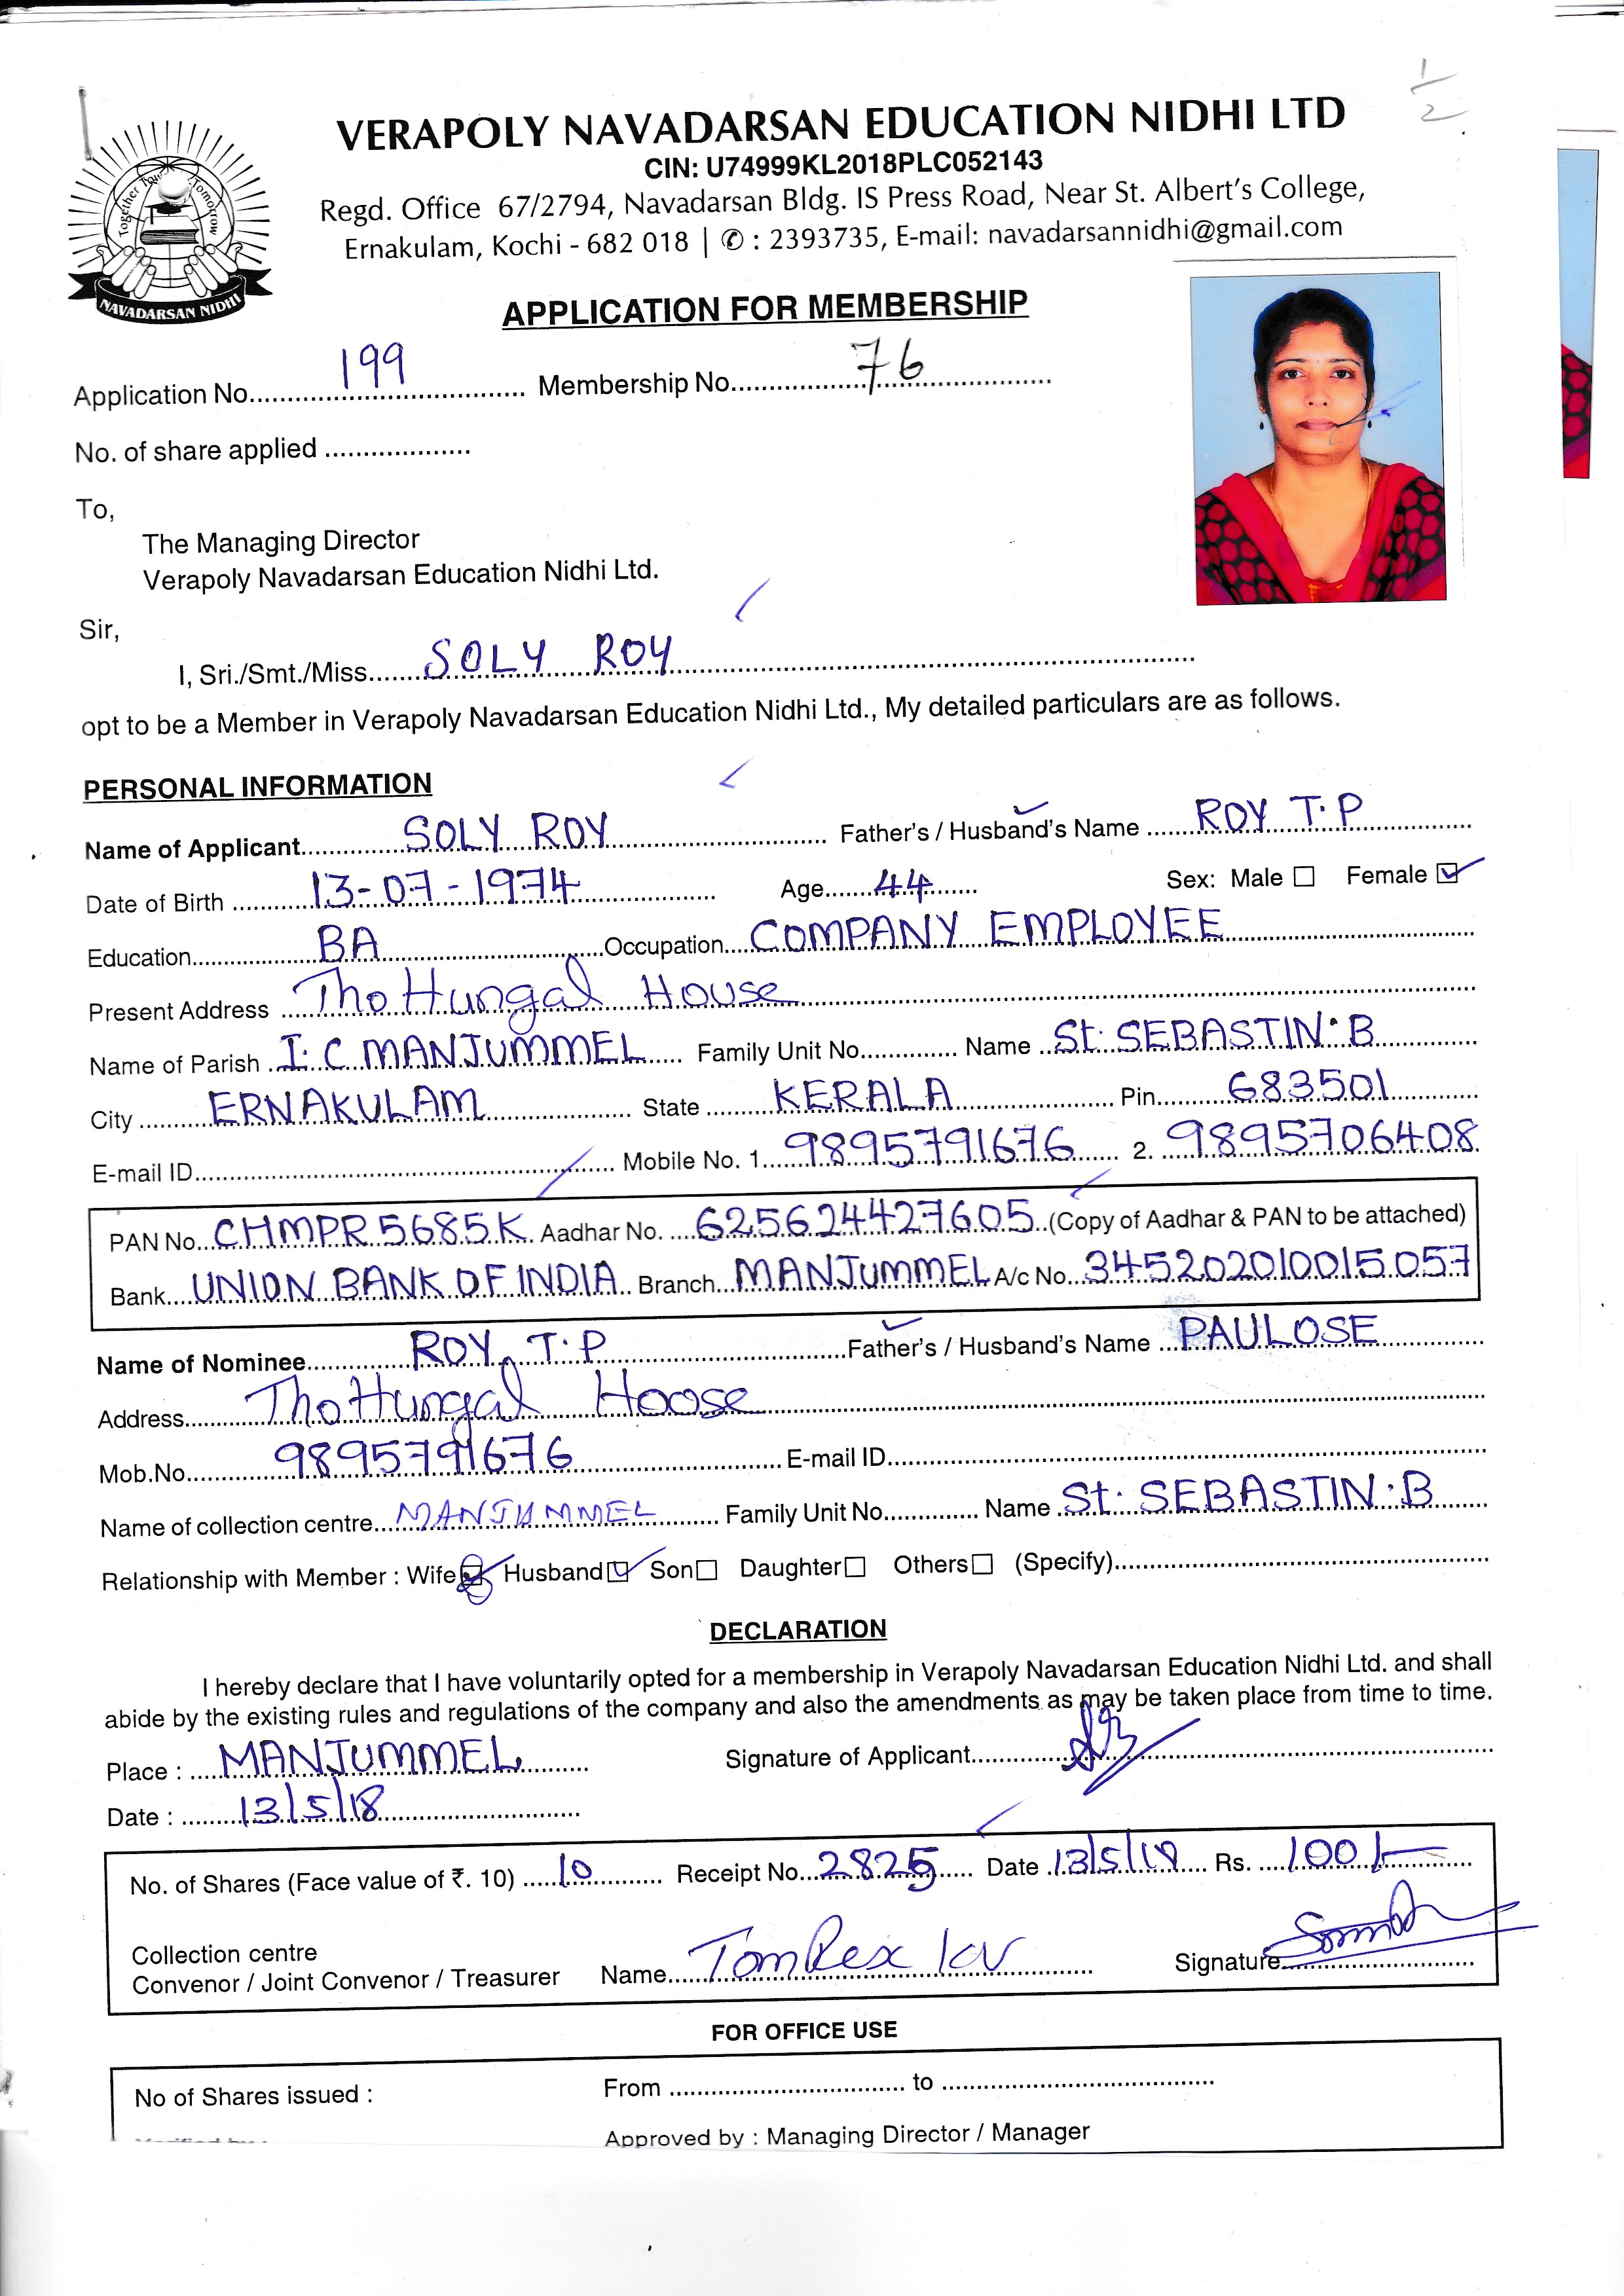 1/2
VERAPOLY NAVADARSAN EDUCATION NIDHI LTD
CIN: U74999KL2018PLC052143
Regd. Office 67/2794, Navadarsan Bldg. IS Press Road, Near St. Albert's College,
Ernakulam, Kochi - 682 018 | ✆ : 2393735, E-mail: navadarsannidhi@gmail.com
Together Tomorrow
NAVADARSAN NIDHI
APPLICATION FOR MEMBERSHIP
Application No. 199 Membership No. 76
No. of share applied
To,
The Managing Director
Verapoly Navadarsan Education Nidhi Ltd.
Sir,
I, Sri./Smt./Miss. SOLY ROY
opt to be a Member in Verapoly Navadarsan Education Nidhi Ltd., My detailed particulars are as follows.
PERSONAL INFORMATION
Name of Applicant SOLY ROY Father's / Husband's Name ROY T.P
Date of Birth 13-07-1974 Age 44 Sex: Male ☐ Female ☑
Education BA Occupation COMPANY EMPLOYEE
Present Address ThoHungal House
Name of Parish I.C MANJUMMEL Family Unit No. Name St. SEBASTIN.B
City ERNAKULAM State KERALA Pin 683501
E-mail ID Mobile No. 1. 9895791676 2. 9895706408
PAN No. CHMPR5685K Aadhar No. 625624427605 (Copy of Aadhar & PAN to be attached)
Bank UNION BANK OF INDIA Branch MANJUMMEL A/c No. 345202010015057
Name of Nominee ROY T.P Father's / Husband's Name PAULOSE
Address ThoHungal Hoose
Mob.No. 9895791676 E-mail ID
Name of collection centre MANJUMMEL Family Unit No. Name St. SEBASTIN.B
Relationship with Member : Wife ☑ Husband ☑ Son ☐ Daughter ☐ Others ☐ (Specify)
DECLARATION
I hereby declare that I have voluntarily opted for a membership in Verapoly Navadarsan Education Nidhi Ltd. and shall
abide by the existing rules and regulations of the company and also the amendments as may be taken place from time to time.
Place : MANJUMMEL Signature of Applicant
Date : 13/5/18
No. of Shares (Face value of ₹. 10) 10 Receipt No. 2825 Date 13/5/18 Rs. 100/-
Collection centre
Convenor / Joint Convenor / Treasurer Name Tom Rex KV Signature
FOR OFFICE USE
No of Shares issued : From to
Approved by : Managing Director / Manager